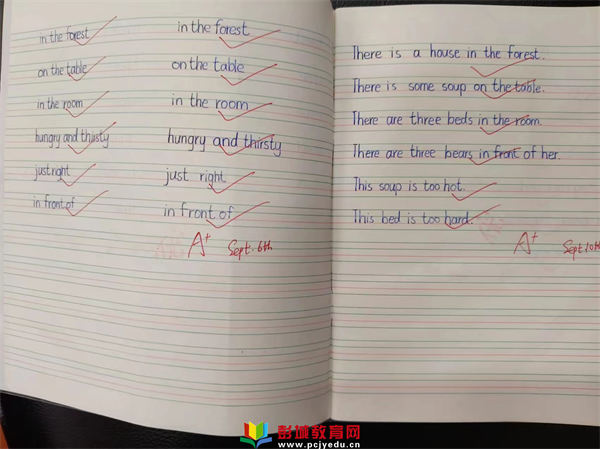 in the forest in the forest
on the table on the table
in the room in the room
hungry and thirsty hungry and thirsty
just right just right
in front of in front of
A+ Sept. 6th
There is a house in the forest.
There is some soup on the table.
There are three beds in the room.
There are three bears in front of her.
This soup is too hot.
This bed is too hard.
A+ Sept 10th
彭城教育网
www.pcjyedu.cn